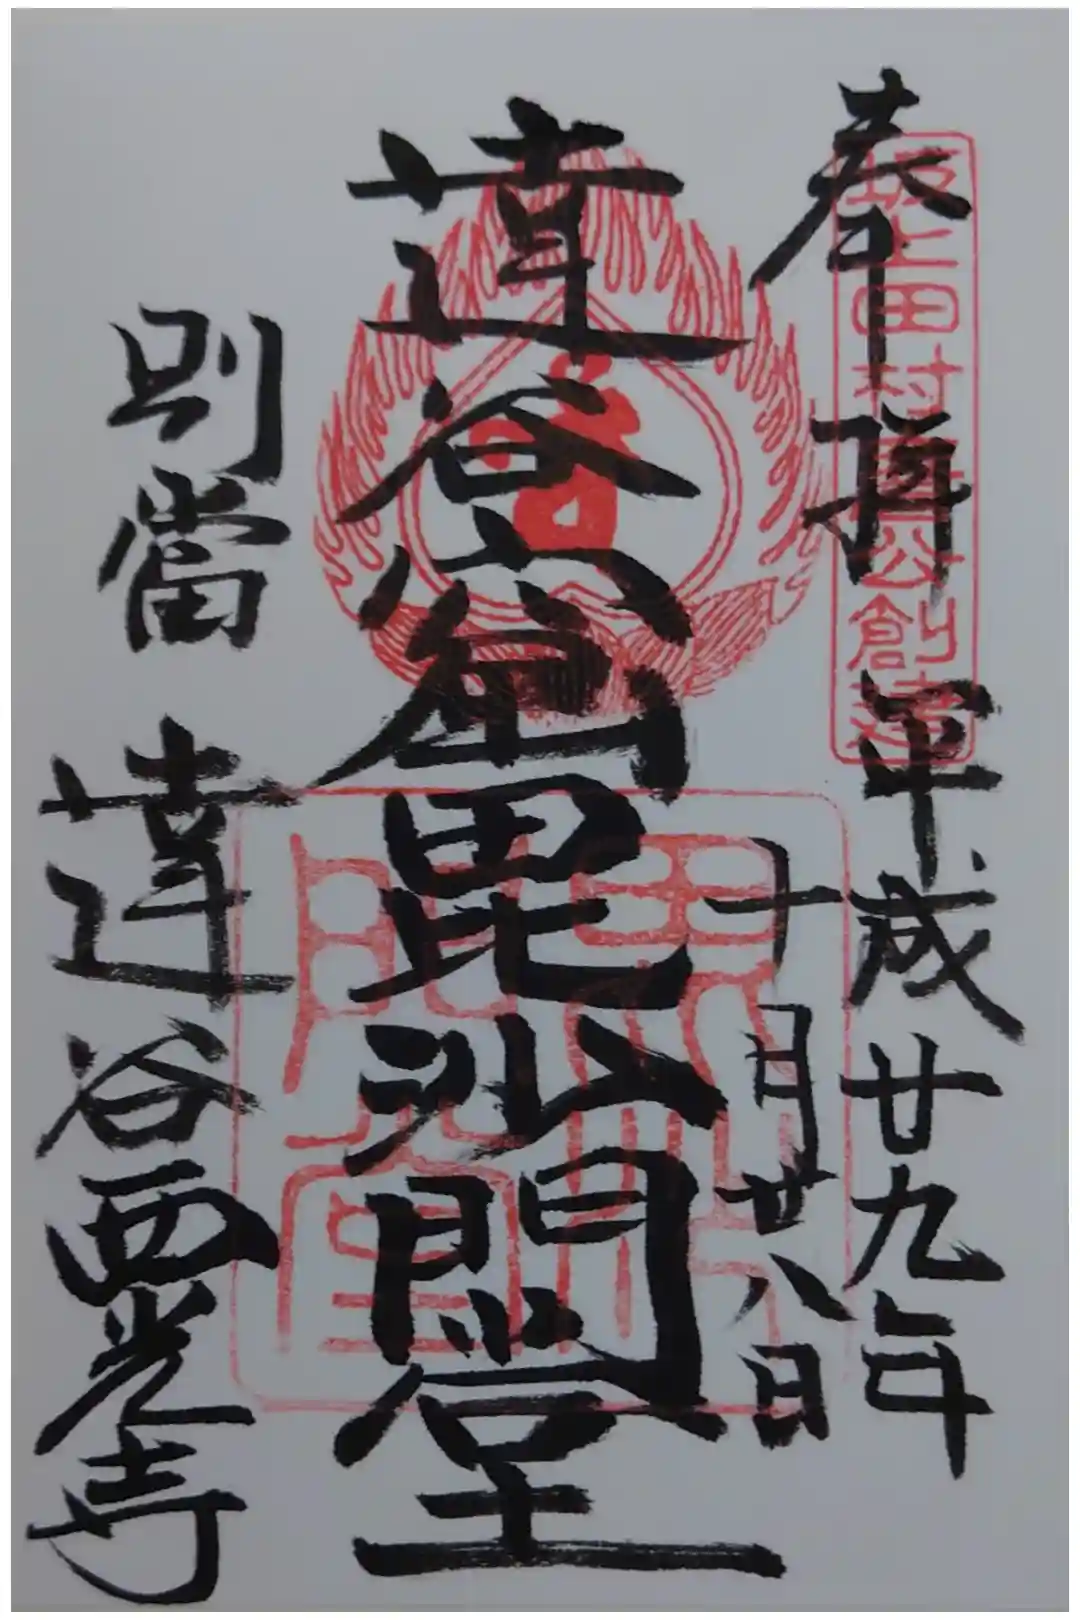 奉拝
坂上田村麿公創建
平成廿九年
十月廿八日
達谷窟毘沙門堂
別當
達谷西光寺